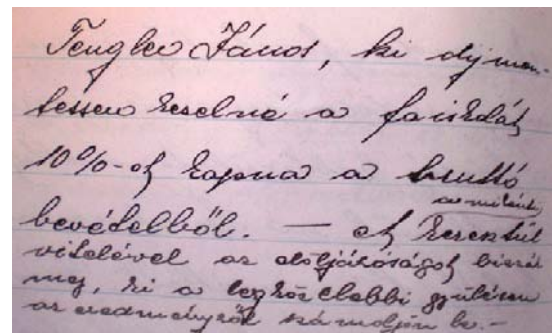 Tengler János, ki díjmen-
tessen kezelné a faiskolát
10%-ot kapna a bruttó
bevételből. — et keresztül
vitelével az elöljáróságot bizzák
meg, ki a legközelebbi gyülésen
az eredményről számoljon be-